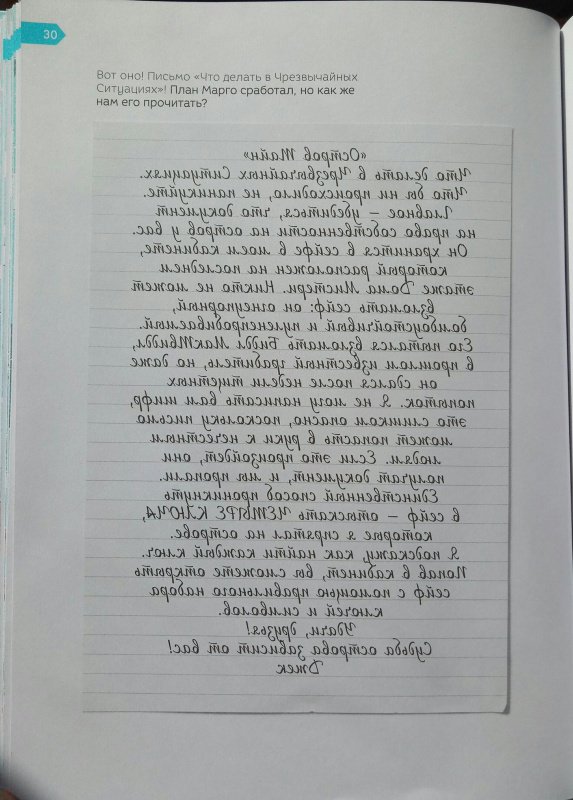 30
Вот оно! Письмо «Что делать в Чрезвычайных
Ситуациях»! План Марго сработал, но как же
нам его прочитать?
«Остров Тайн»
Что делать в Чрезвычайных Ситуациях.
Что бы ни происходило, не паникуйте.
Главное – убедиться, что документ
на право собственности на остров у вас.
Он хранится в сейфе в моем кабинете,
который расположен на последнем
этаже Дома Мистери. Никто не может
взломать сейф: он огнеупорный,
бомбоустойчивый и пуленепробиваемый.
Его пытался взломать Бидди МакТвидди,
в прошлом известный грабитель, но даже
он сдался после недели тщетных
попыток. Я не могу написать вам шифр,
это слишком опасно, поскольку письмо
может попасть в руки к нечестным
людям. Если это произойдет, они
получат документ, и мы пропали.
Единственный способ проникнуть
в сейф – отыскать ЧЕТЫРЕ КЛЮЧА,
которые я спрятал на острове.
Я подскажу, как найти каждый ключ.
Попав в кабинет, вы сможете открыть
сейф с помощью правильного набора
ключей и символов.
Удачи, друзья!
Судьба острова зависит от вас!
Джек